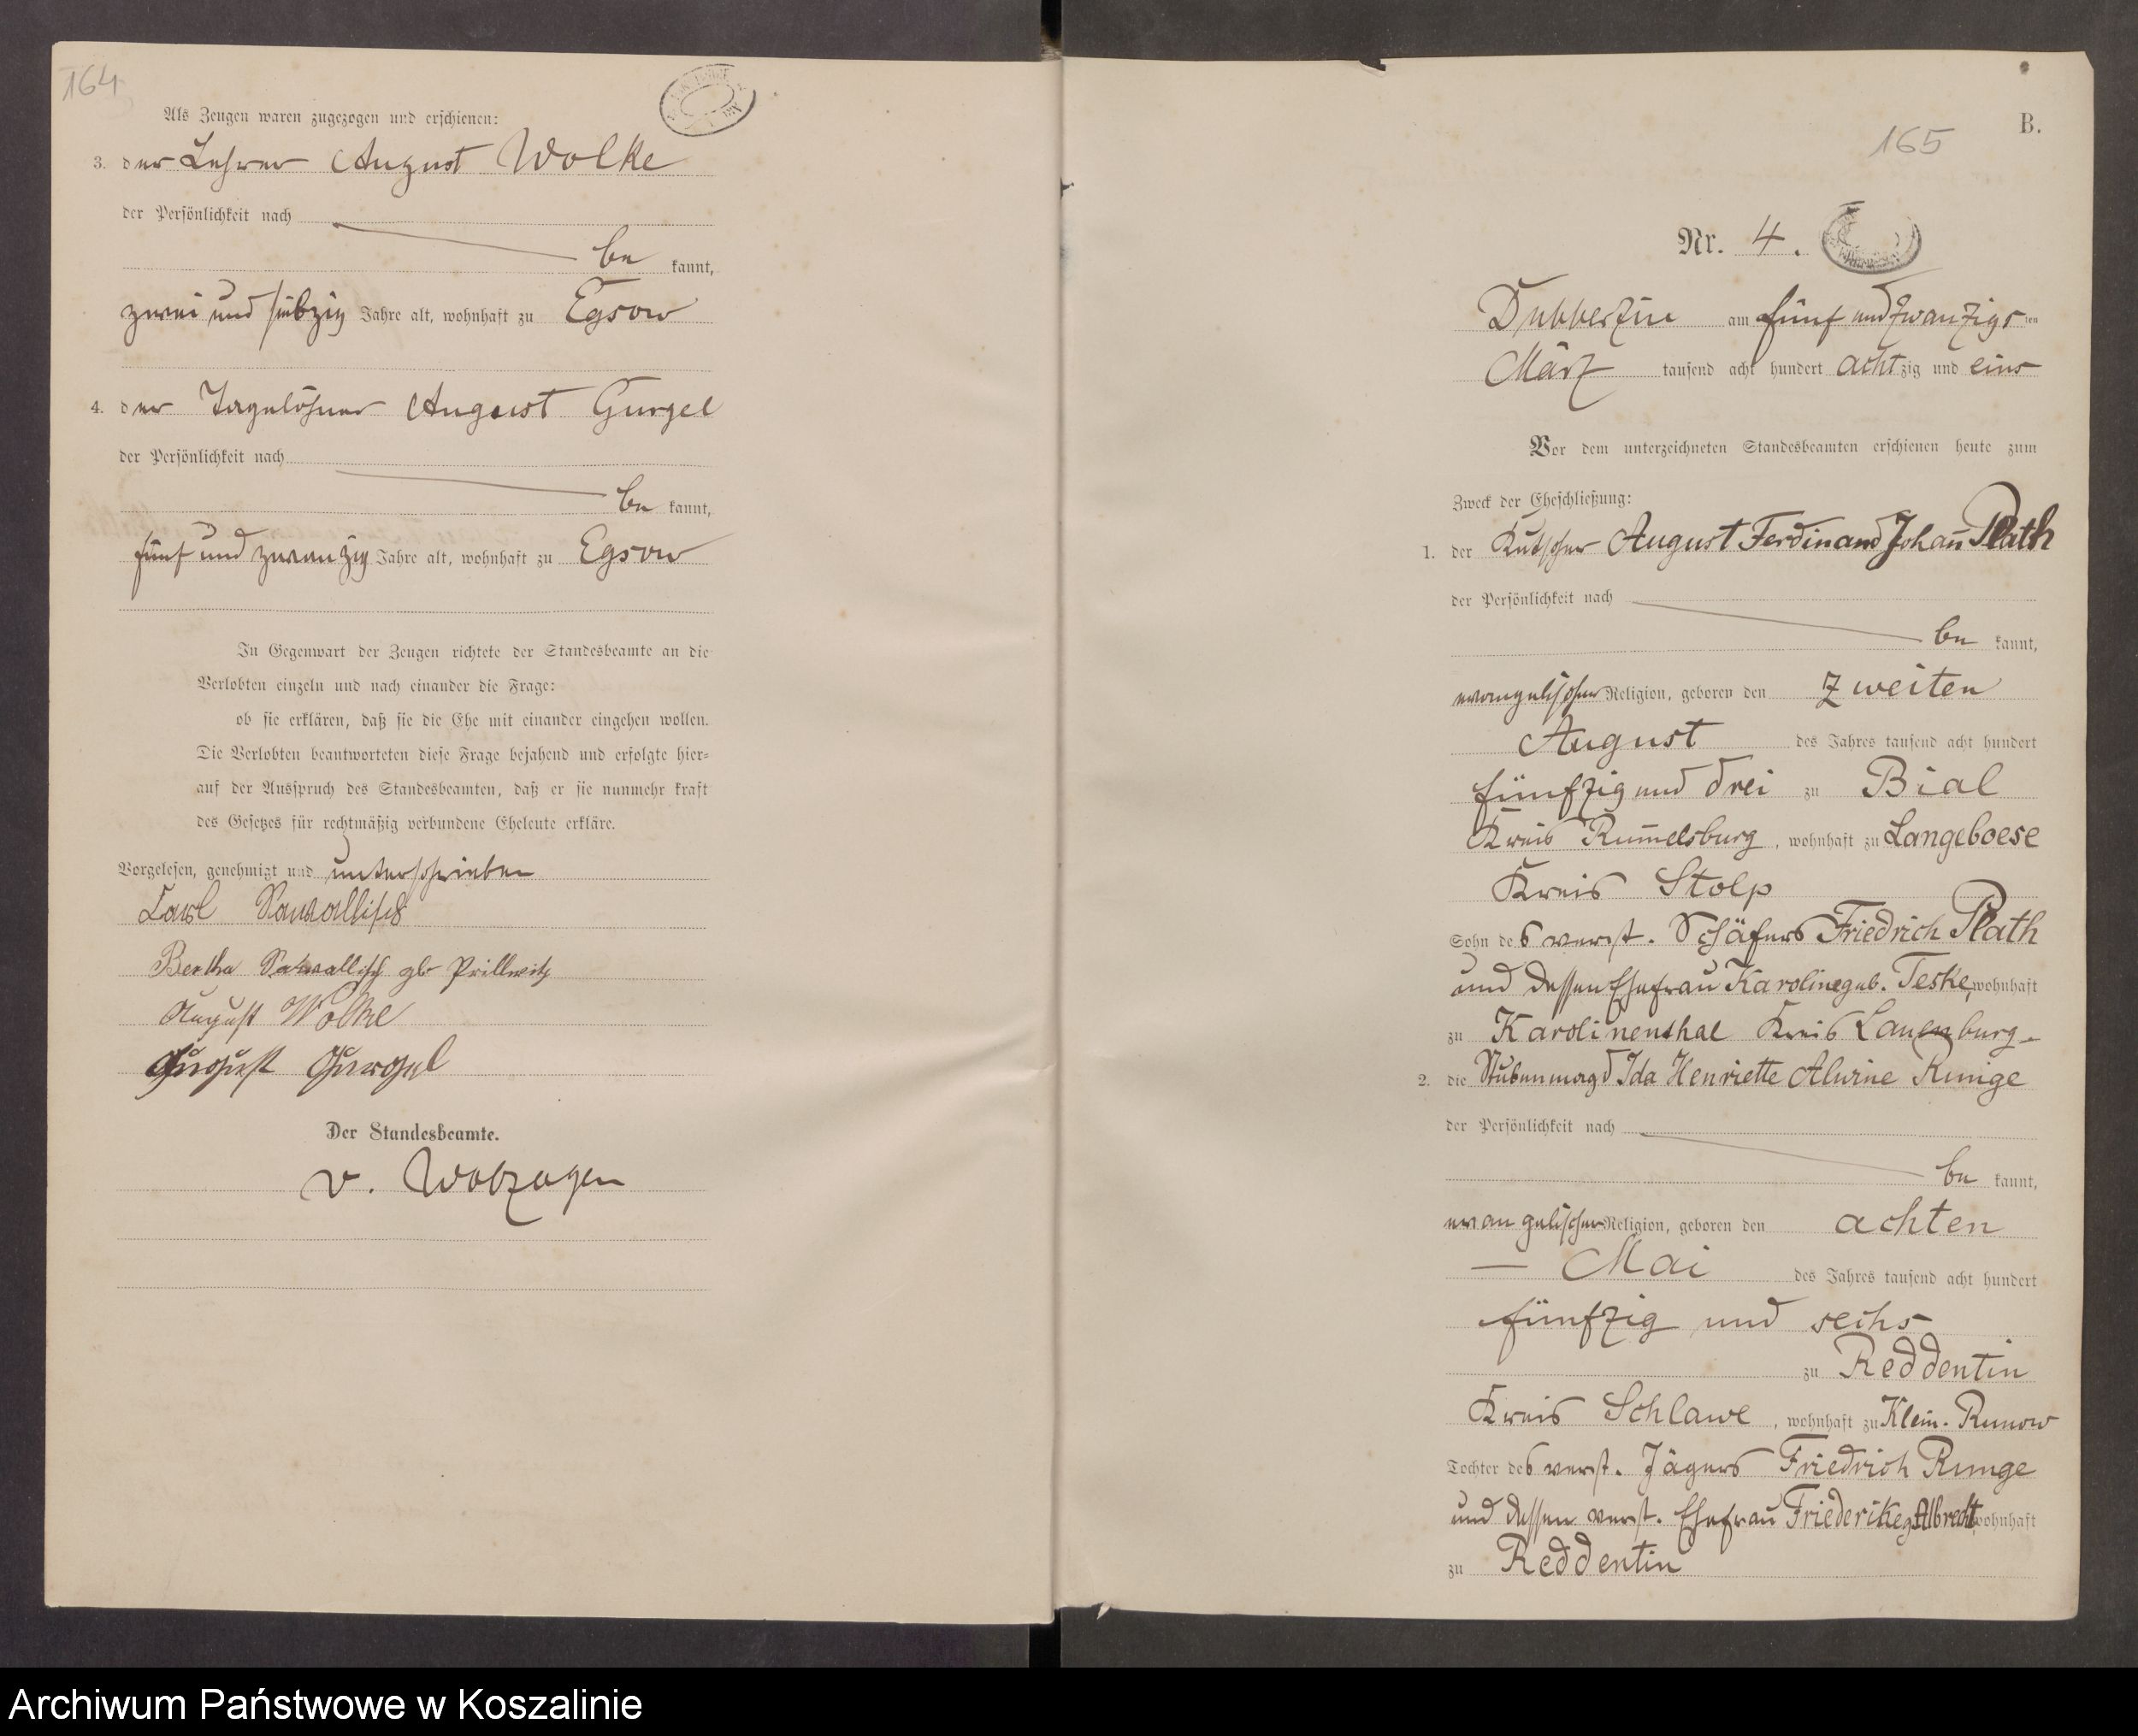 164
Als Zeugen waren zugezogen und erschienen:
3. der Lehrer August Wolke
der Persönlichkeit nach
be kannt,
zwei und siebzig Jahre alt, wohnhaft zu Egsow
4. der Tagelöhner August Gurgel
der Persönlichkeit nach
be kannt,
fünf und zwanzig Jahre alt, wohnhaft zu Egsow
In Gegenwart der Zeugen richtete der Standesbeamte an die
Verlobten einzeln und nach einander die Frage:
ob sie erklären, daß sie die Ehe mit einander eingehen wollen.
Die Verlobten beantworteten diese Frage bejahend und erfolgte hier=
auf der Ausspruch des Standesbeamten, daß er sie nunmehr kraft
des Gesetzes für rechtmäßig verbundene Eheleute erkläre.
Vorgelesen, genehmigt und unterschrieben
Carl
Bertha gb Prillwitz
August Wolke
August Gurgel
Der Standesbeamte.
v.
B.
165
Nr. 4.
Dubberzin am fünf und zwanzigs ten
März tausend acht hundert acht zig und eins
Vor dem unterzeichneten Standesbeamten erschienen heute zum
Zweck der Eheschließung:
1. der Kutscher August Ferdinand Johan̄ Plath
der Persönlichkeit nach
be kannt,
evangelischer Religion, geboren den zweiten
August des Jahres tausend acht hundert
fünfzig und drei zu Bial
Kreis Rum̄elsburg, wohnhaft zu Langeboese
Kreis Stolp
Sohn des verst. Schäfers Friedrich Plath
und dessen Ehefrau Karoline geb. Teske, wohnhaft
zu Karolinenthal Kreis Lauenburg.
2. die Stubenmagd Ida Henriette Alwine Runge
der Persönlichkeit nach
be kannt,
evangelischer Religion, geboren den achten
— Mai des Jahres tausend acht hundert
fünfzig und sechs
zu Reddentin
Kreis Schlawe, wohnhaft zu Klein-Runow
Tochter des verst. Jägers Friedrich Runge
und dessen verst. Ehefrau Friederike g Albrecht wohnhaft
zu Reddentin
Archiwum Państwowe w Koszalinie